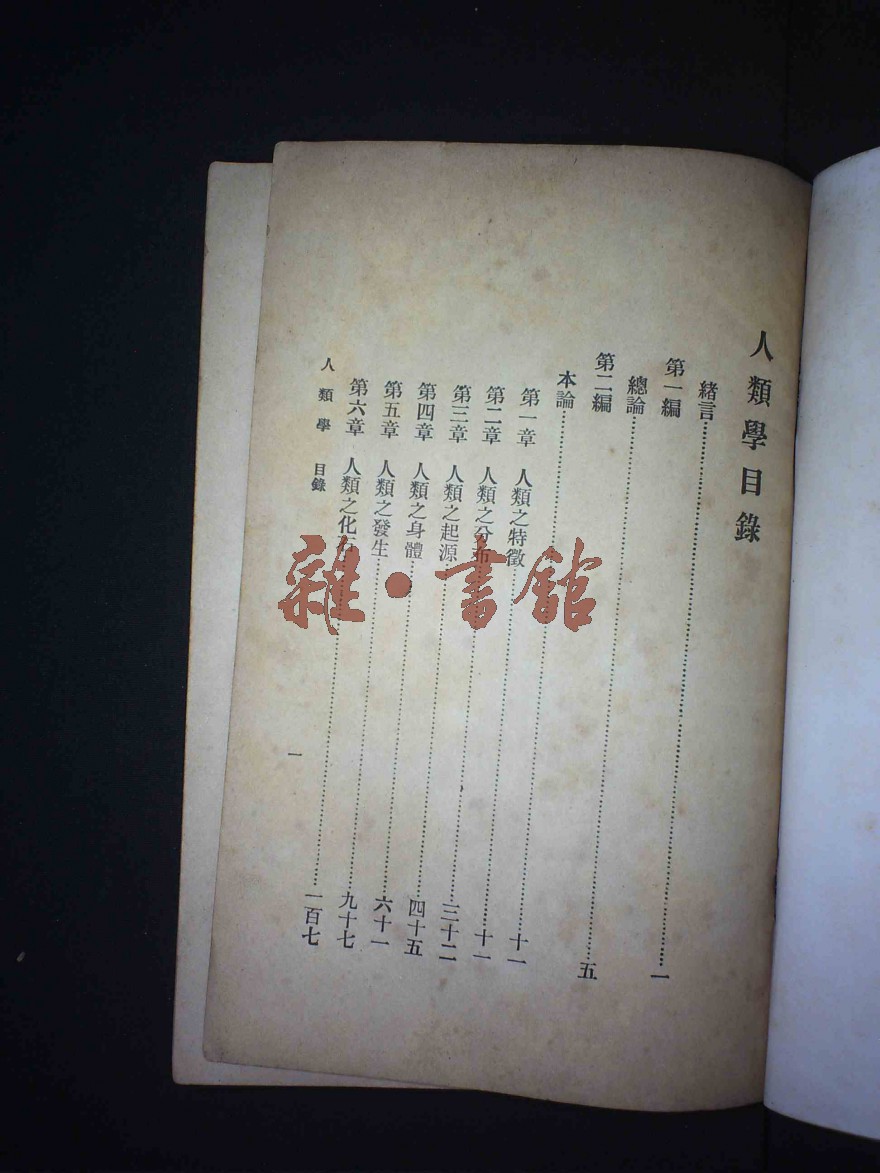 人類學目錄
緒言……………………一
第一編
總論……………………五
第二編
本論……………………十一
第一章 人類之特徵……………………十一
第二章 人類之分布……………………三十二
第三章 人類之起源……………………四十五
第四章 人類之身體……………………六十一
第五章 人類之發生……………………九十七
第六章 人類之化石……………………一百七
人類學 目錄
一
雜·書館